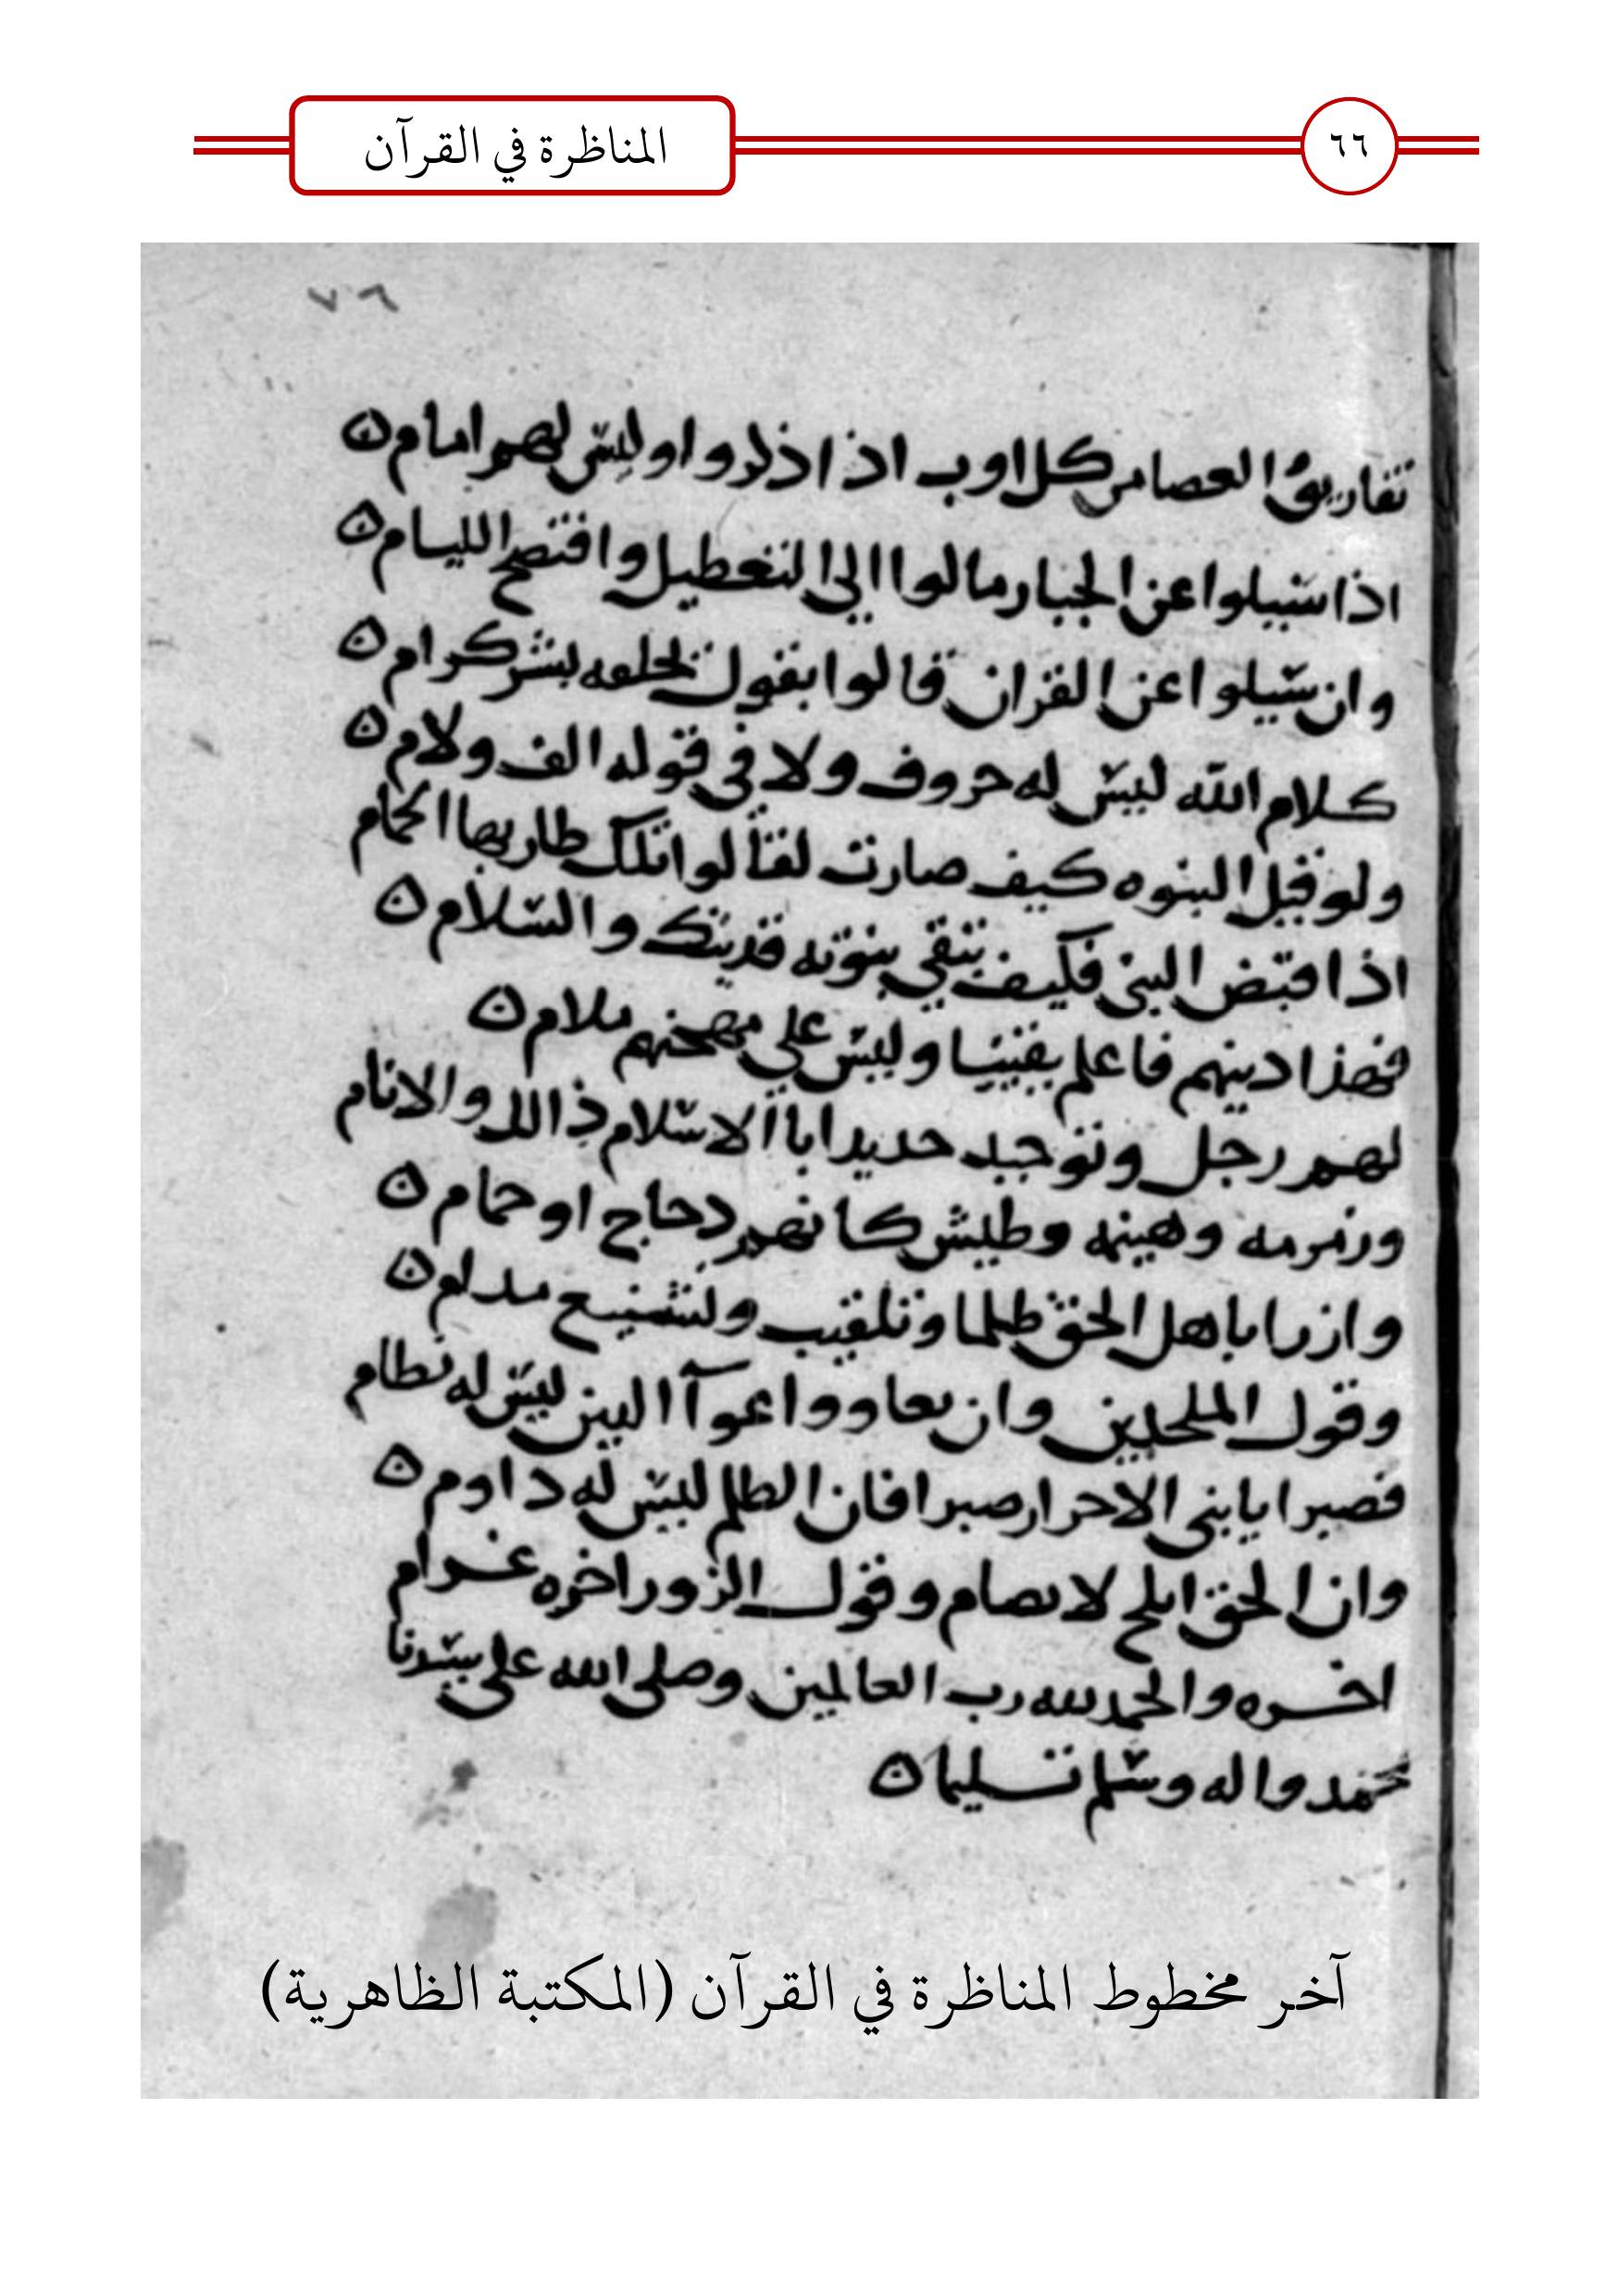 ٦٦
المناظرة في القرآن
٧٦
تفاريق العصا من كل اوب اذا ذكروا وليس لهم امام ن
اذا سيلوا عن الجبار مالوا الى التعطيل وافتضح الليام ن
وان سيلوا عن القران قالوا بقول خلقه بشر كرام ن
كلام الله ليس له حروف ولا في قوله الف ولام ن
ولو قيل النبوه كيف صارت لقالوا تلك طار بها الحمام
اذا قبض النبي فكيف تبقى نبوته فديتك والسلام ن
فهذا دينهم فاعلم يقينا وليس على مهجنهم ملام ن
لهم رجل وتوجيد حديد ابا الاسلام ذالك والانام
وزمزمه وهينمه وطيش كانهم دجاج او حمام ن
وازرا باهل الحق ظلما وتلقيب وتشنيع مدام ن
وقول الملحدين وان تعاووا عوآ ليس له نظام
فصبرا يا بني الاحرار صبرا فان الظلم ليس له داوم ن
وان الحق ابلج لا يضام وقول الزور اخره غرام
اخره والحمد لله رب العالمين وصلى الله على سيدنا
محمد واله وسلم تسليما ن
آخر مخطوط المناظرة في القرآن (المكتبة الظاهرية)